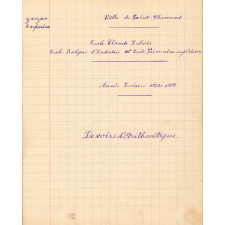 Ville de Saint-Chamond
Ecole Claude Lebois
Ecole Pratique d'Industrie et Ecole Primaire supérieure
Année Scolaire
Devoirs d'Arithmétique